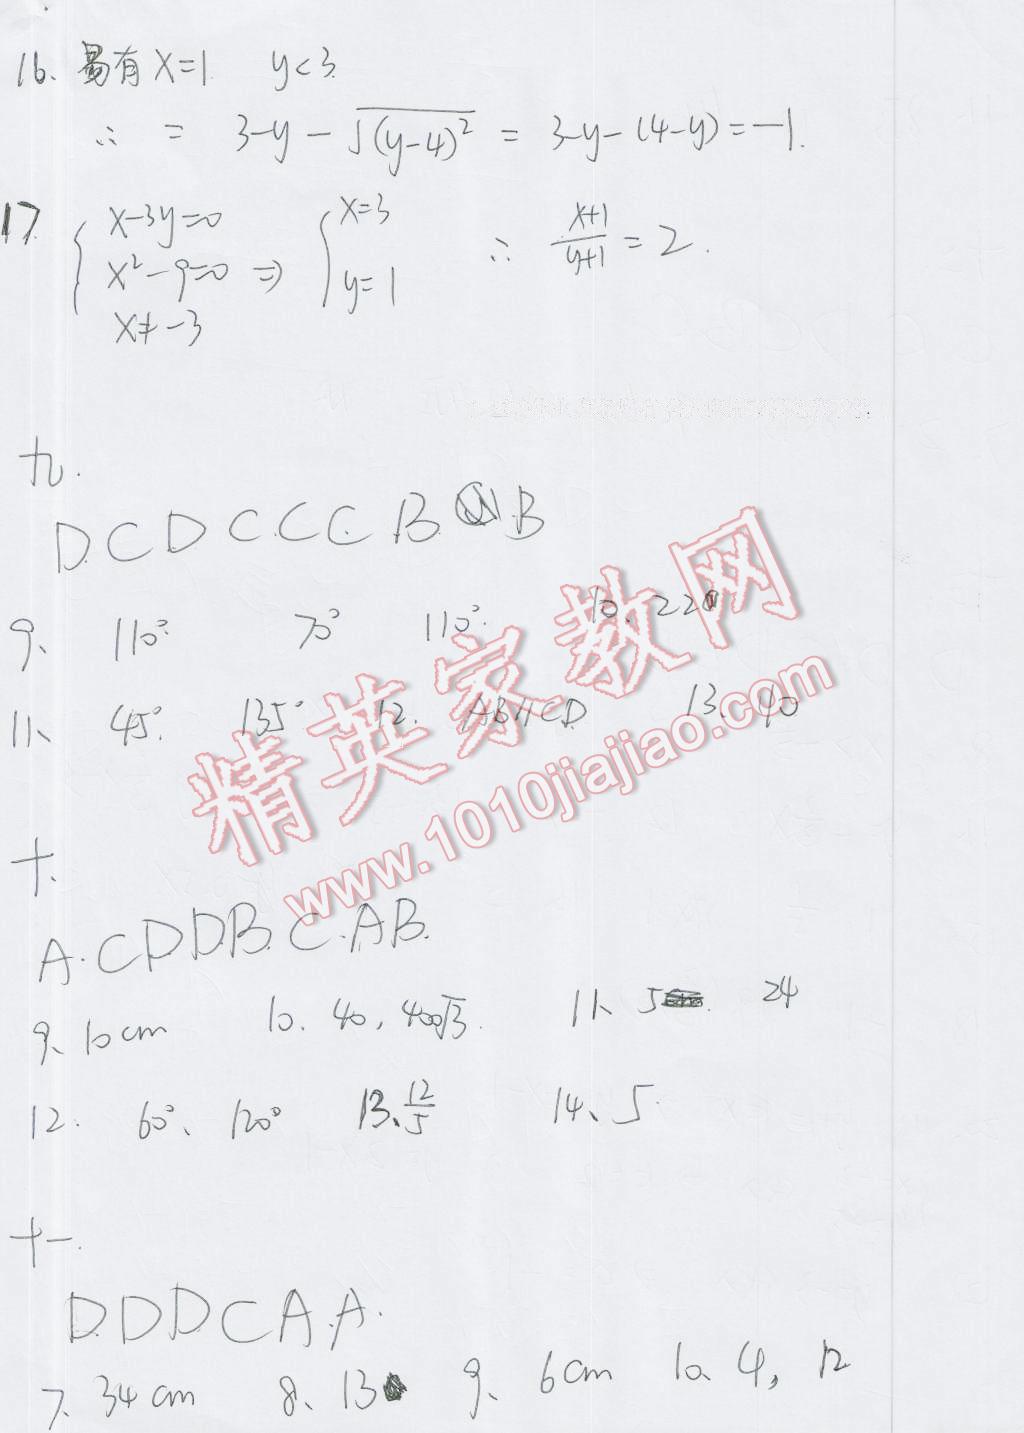 16、易有 x=1 y<3
∴ = 3-y-√(y-4)² = 3-y-(4-y)=-1.
17. { x-3y=0 x²-9=0 x≠-3 ⇒ { x=3 y=1 ∴ (x+1)/(y+1) = 2.
九.
D. C D C. C. C B. B
9、 110° 70° 110° 10、220
11、 45°. 135° 12. AB∥CD 13. 40
精英家教网
www.1010jiajiao.com
十.
A. C D D B. C. A B.
9、10cm 10. 40, 400√3. 11、5 24
12. 60°、120° 13、12/5 14、5.
十一.
D. D D C A. A.
7、34cm 8、13 9、6cm 10、4, 12